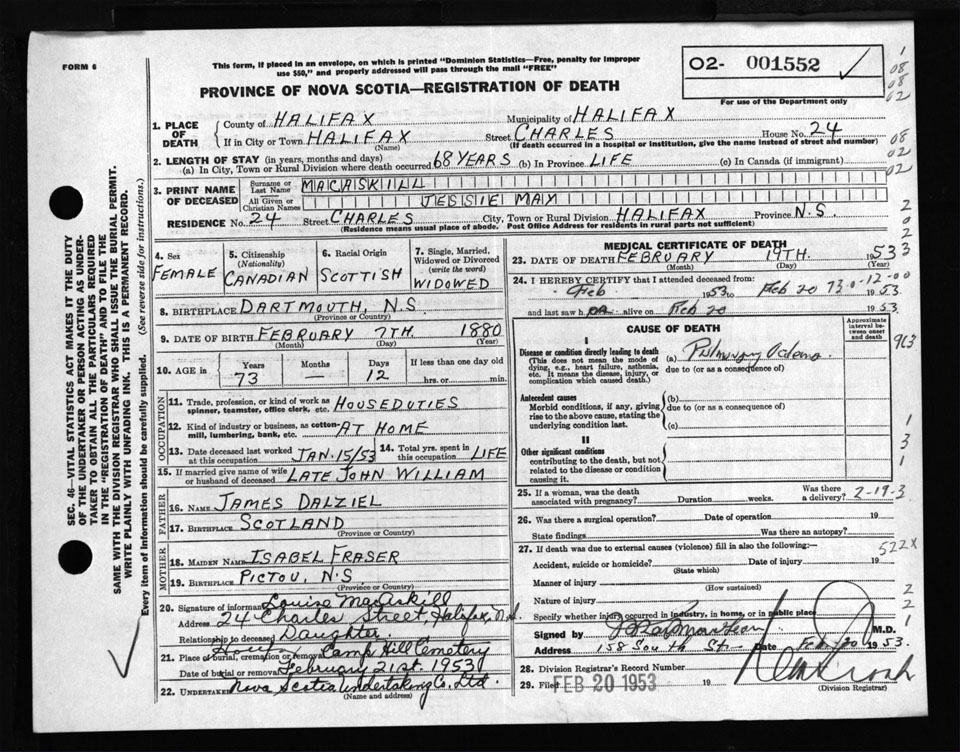 FORM 6
This form, if placed in an envelope, on which is printed "Dominion Statistics—Free, penalty for improper
use $50," and properly addressed will pass through the mail "FREE"
O2- 001552 ✓
For use of the Department only
PROVINCE OF NOVA SCOTIA—REGISTRATION OF DEATH
1. PLACE OF DEATH County of HALIFAX Municipality of HALIFAX
If in City or Town HALIFAX Street CHARLES House No. 24
(Name) (If death occurred in a hospital or institution, give the name instead of street and number)
2. LENGTH OF STAY (in years, months and days)
(a) In City, Town or Rural Division where death occurred 68 YEARS (b) In Province LIFE (c) In Canada (if immigrant)
3. PRINT NAME OF DECEASED Surname or Last Name MACASKILL
All Given or Christian Names JESSIE MAY
RESIDENCE No. 24 Street CHARLES City, Town or Rural Division HALIFAX Province N.S.
(Residence means usual place of abode. Post Office Address for residents in rural parts not sufficient)
SEC. 46—VITAL STATISTICS ACT MAKES IT THE DUTY
OF THE UNDERTAKER OR PERSON ACTING AS UNDER-
TAKER TO OBTAIN ALL THE PARTICULARS REQUIRED
IN THE "REGISTRATION OF DEATH" AND TO FILE THE
SAME WITH THE DIVISION REGISTRAR WHO SHALL ISSUE THE BURIAL PERMIT.
WRITE PLAINLY WITH UNFADING INK. THIS IS A PERMANENT RECORD.
Every item of information should be carefully supplied. (See reverse side for instructions.)
4. Sex FEMALE
5. Citizenship (Nationality) CANADIAN
6. Racial Origin SCOTTISH
7. Single, Married, Widowed or Divorced (write the word) WIDOWED
8. BIRTHPLACE DARTMOUTH, N.S.
(Province or Country)
9. DATE OF BIRTH FEBRUARY 7TH. 1880
(Month) (Day) (Year)
10. AGE in Years 73 Months — Days 12 If less than one day old hrs. or min.
OCCUPATION
11. Trade, profession, or kind of work as
spinner, teamster, office clerk, etc. HOUSEDUTIES
12. Kind of industry or business, as cotton-
mill, lumbering, bank, etc. AT HOME
13. Date deceased last worked
at this occupation JAN. 15/53 14. Total yrs. spent in this occupation LIFE
15. If married give name of wife
or husband of deceased LATE JOHN WILLIAM
FATHER
16. NAME JAMES DALZIEL
17. BIRTHPLACE SCOTLAND
(Province or Country)
MOTHER
18. MAIDEN NAME ISABEL FRASER
19. BIRTHPLACE PICTOU, N.S.
(Province or Country)
20. Signature of informant Louise MacAskill
Address 24 Charles Street, Halifax, N.S.
Relationship to deceased Daughter.
21. Place of burial, cremation or removal Camp Hill Cemetery
Date of burial or removal February 21st. 1953
22. UNDERTAKER Nova Scotia Undertaking Co., Ltd.
(Name and address)
MEDICAL CERTIFICATE OF DEATH
23. DATE OF DEATH FEBRUARY 19TH. 1953
(Month) (Day) (Year)
24. I HEREBY CERTIFY that I attended deceased from:
Feb 1953 to Feb 20 1953
and last saw h alive on Feb 20 1953
CAUSE OF DEATH
Approximate interval between onset and death
I
Disease or condition directly leading to death
(This does not mean the mode of
dying, e.g., heart failure, asthenia,
etc. It means the disease, injury, or
complication which caused death.)
(a) Pulmonary Odema
due to (or as a consequence of)
Antecedent causes
Morbid conditions, if any, giving
rise to the above cause, stating the
underlying condition last.
(b)
due to (or as a consequence of)
(c)
II
Other significant conditions
contributing to the death, but not
related to the disease or condition
causing it.
25. If a woman, was the death
associated with pregnancy? Duration weeks. Was there a delivery? 2-19-3
26. Was there a surgical operation? Date of operation 19
State findings Was there an autopsy?
27. If death was due to external causes (violence) fill in also the following:— 522X
Accident, suicide or homicide? Date of injury 19
(State which)
Manner of injury
(How sustained)
Nature of injury
Specify whether injury occurred in industry, in home, or in public place
Signed by M.D.
Address 158 South St. Date Feb 20 1953.
28. Division Registrar's Record Number
29. Filed FEB 20 1953 19
(Division Registrar)